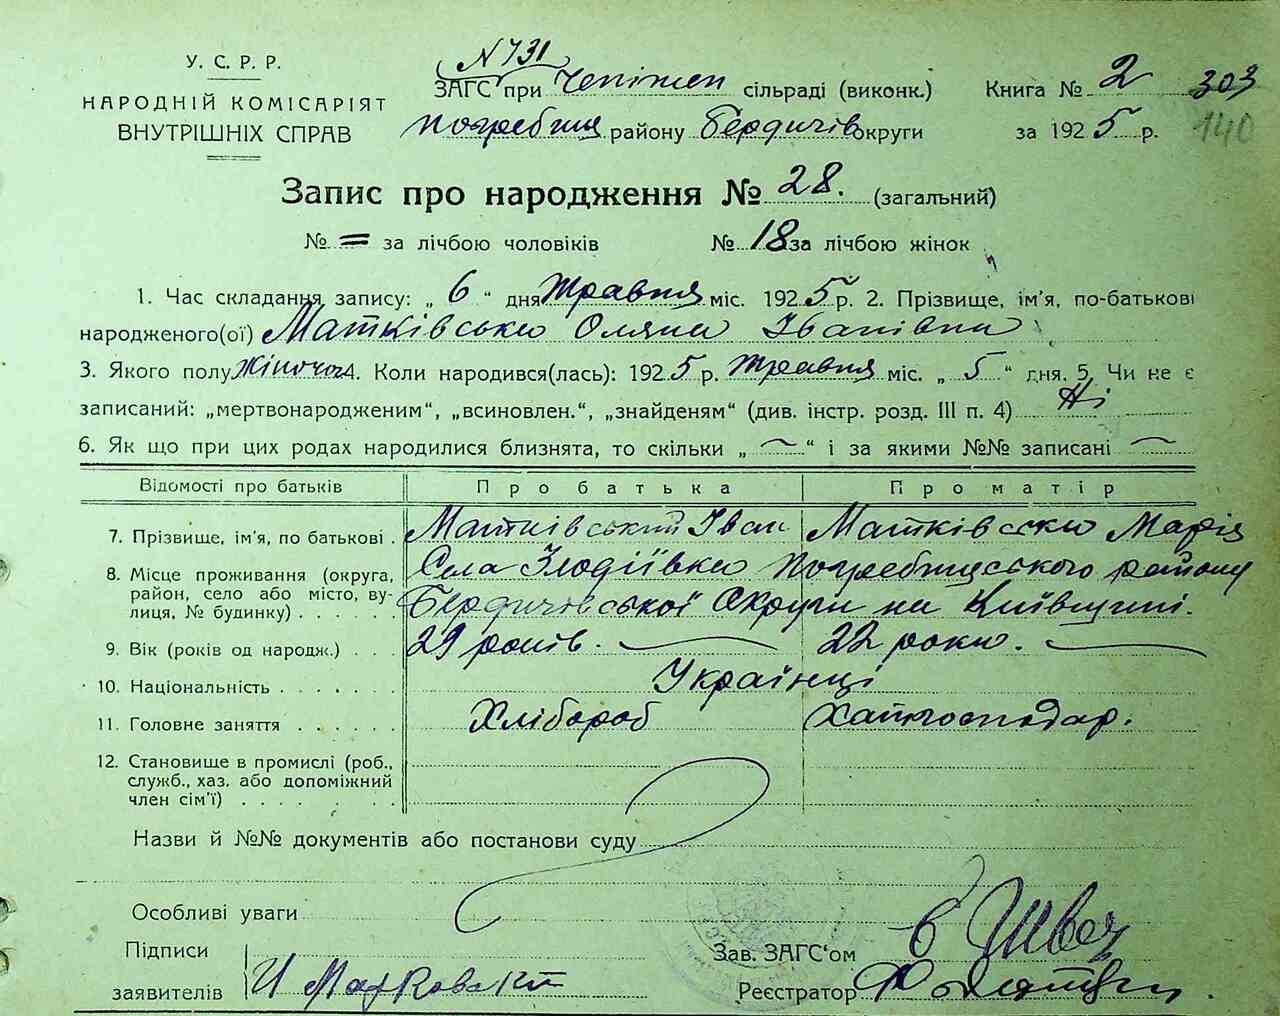 У. С. Р. Р.
НАРОДНІЙ КОМІСАРІЯТ
ВНУТРІШНІХ СПРАВ
N 731
ЗАГС при сільраді (виконк.)
району Бердичів округи
Книга № 2 303
за 1925 р. 140
Запис про народження № 28. (загальний)
№ = за лічбою чоловіків № 18 за лічбою жінок
1. Час складання запису: „ 6 “ дня Травня міс. 1925 р. 2. Прізвище, ім'я, по-батькові
народженого(ої) Матківська Оляна Іванівна
3. Якого полу Жіночо 4. Коли народився(лась): 1925 р. Травня міс. „ 5 “ дня. 5. Чи не є
записаний: „мертвонародженим“, „всиновлен.“, „знайденям“ (див. інстр. розд. III п. 4) Ні
6. Як що при цих родах народилися близнята, то скільки „ — “ і за якими №№ записані —
Відомості про батьків Про батька Про матір
7. Прізвище, ім'я, по батькові . Матківський Іван Матківська Марія
8. Місце проживання (округа, район, село або місто, вулиця, № будинку) . . . . . Села Злодіївки Погребищського району
Бердичовської Округи на Київщині.
9. Вік (років од народж.) . . . 29 років. 22 роки.
10. Національність . . . . . . . Українці
11. Головне заняття . . . . . . Хлібороб Хатгосподар.
12. Становище в промислі (роб., служб., хаз. або допоміжний член сім'ї) . . . . . . . .
Назви й №№ документів або постанови суду
Особливі уваги
Підписи
заявителів
Зав. ЗАГС'ом Швец
Реєстратор